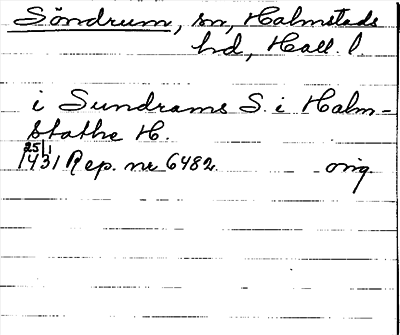 Söndrum, sn, Halmstads
hd, Hall. l
i Sundrams S. i Halm-
stathe H.
25/1
1431 Rep. nr 6482. orig.